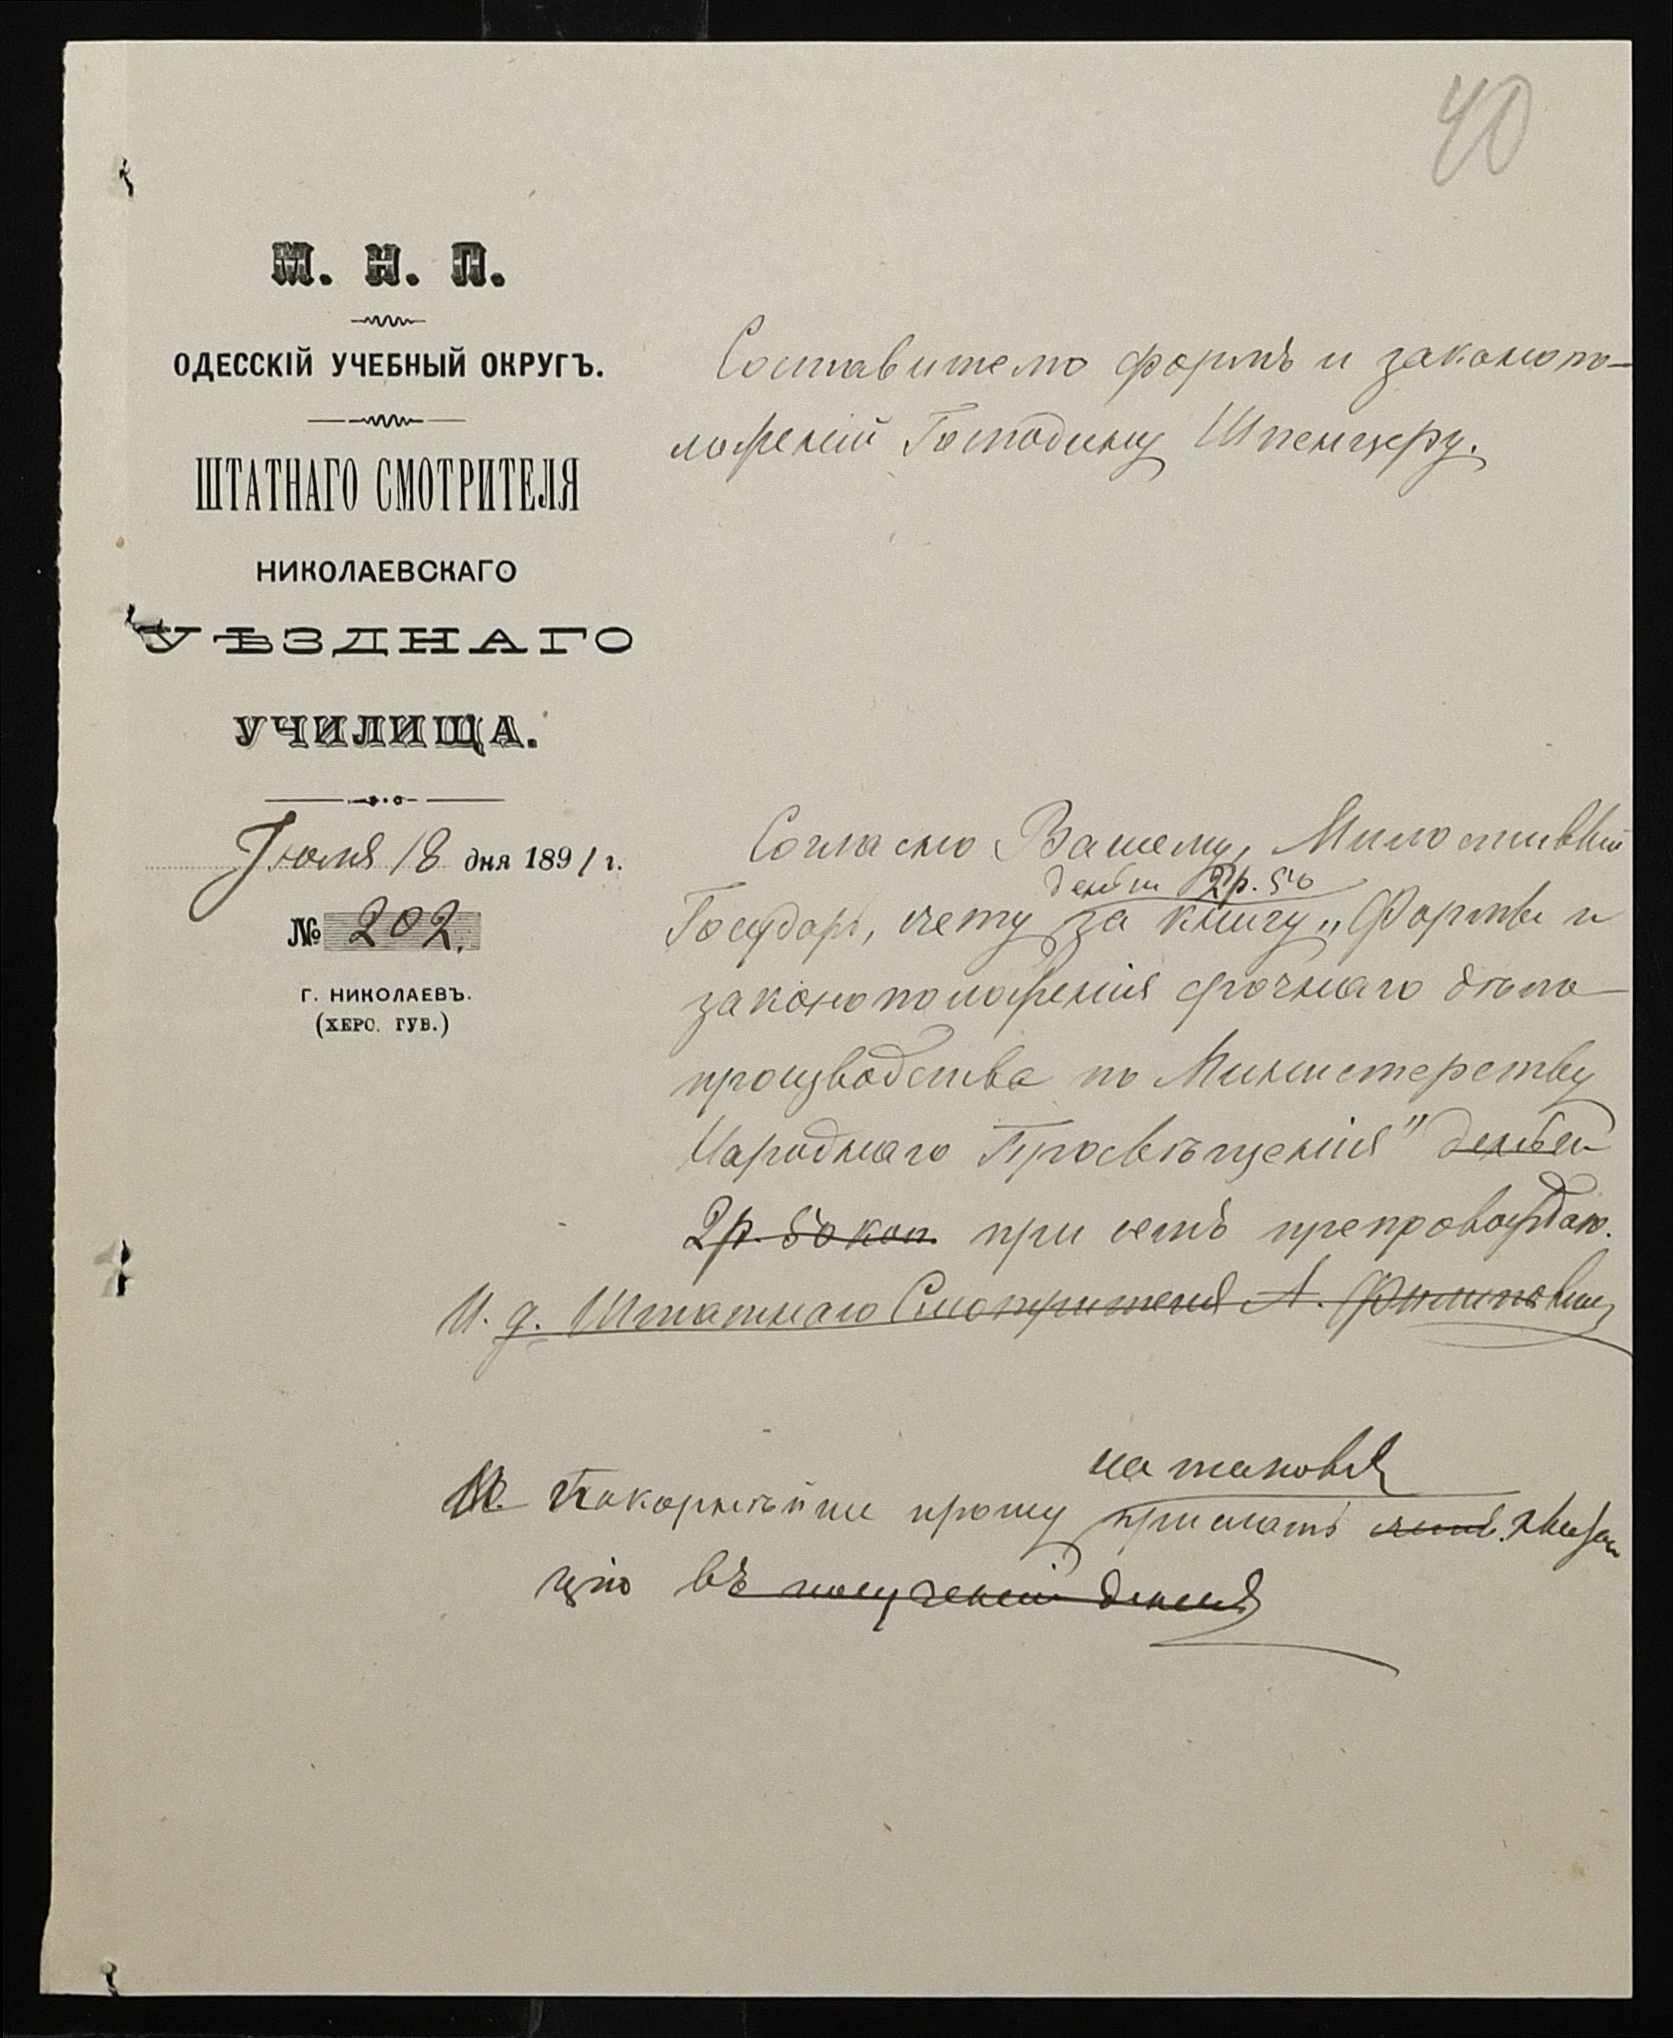 40
М. Н. П.
ОДЕССКІЙ УЧЕБНЫЙ ОКРУГЪ.
ШТАТНАГО СМОТРИТЕЛЯ
НИКОЛАЕВСКАГО
УѢЗДНАГО
УЧИЛИЩА.
Іюля 18 дня 1891 г.
№ 202.
Г. НИКОЛАЕВЪ.
(ХЕРС. ГУБ.)
Составителю формъ и законопо-
ложеній Господину Шпенцеру.
Согласно Вашему, Милостивый
деньги 2 р. 50
Государь, счету за книгу „Формы и
законоположенія срочнаго дѣло-
производства по Министерству
Народнаго Просвѣщенія" деньги
2 р. 50 коп. при семъ препровождаю.
И. д. Штатнаго Смотрителя А. Филиповичъ
на таковыя
Покорнѣйше прошу прислать квитан
цію въ полученіи денегъ